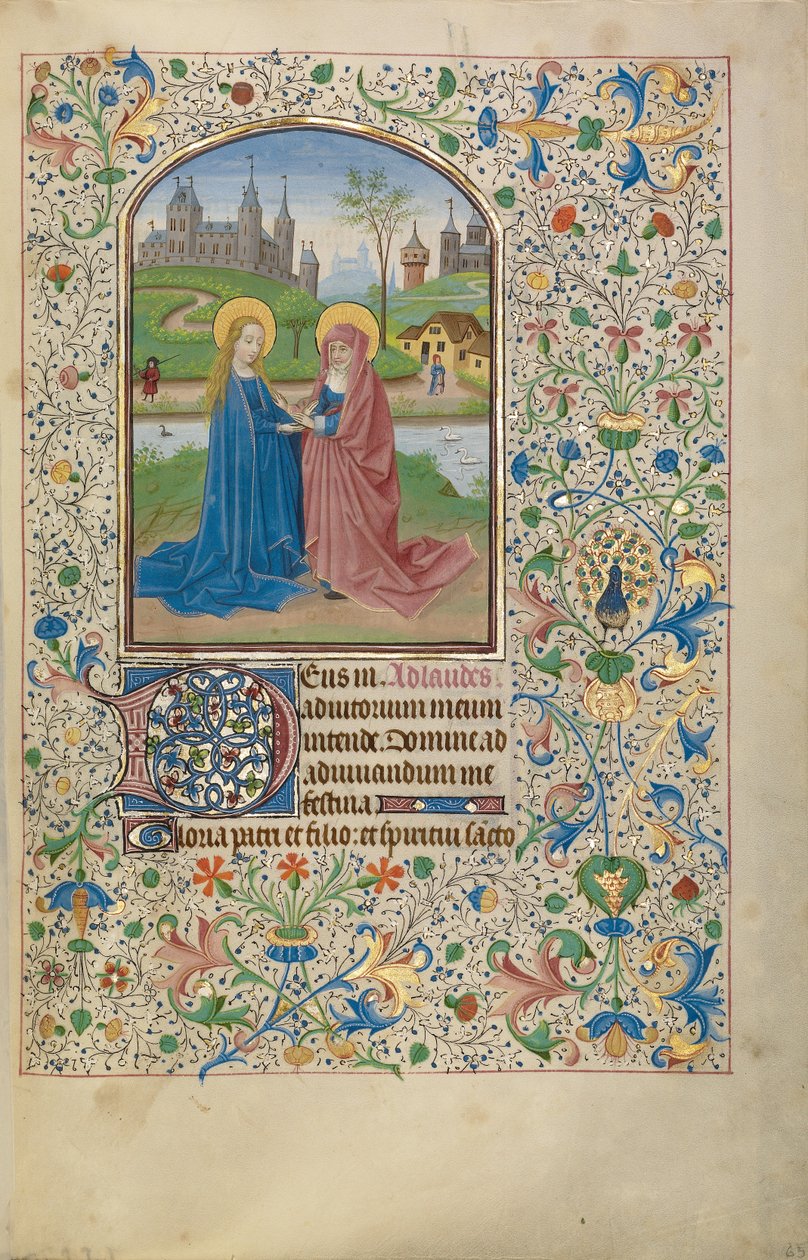 Deus in. Ad laudes.
adiutorium meum
intende. Domine ad
adiuuandum me
festina
Gloria patri et filio: et spiritui sācto
65